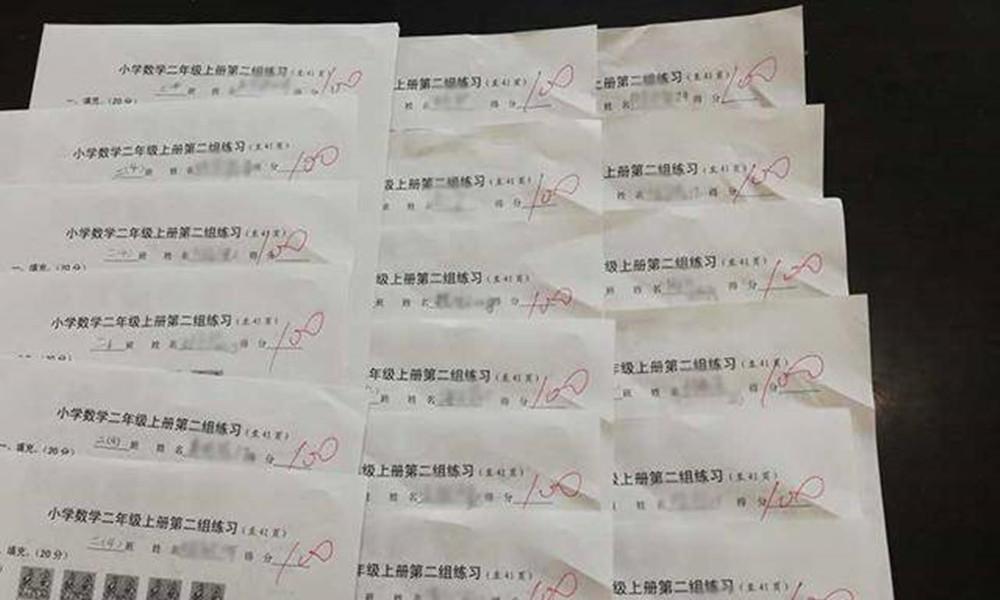 小学数学二年级上册第二组练习(至41页)
班 姓名 得分 100
一、填充。(20分)
小学数学二年级上册第二组练习(至41页)
二(4)班 姓名 得分 100
小学数学二年级上册第二组练习(至41页)
二(4)班 姓名 得分 100
一、填充。(20分)
小学数学二年级上册第二组练习(至41页)
班 姓名 得分 100
小学数学二年级上册第二组练习(至41页)
一、填充。(20分) 二(4)班 姓名 得分 100
小学数学二年级上册第二组练习(至41页)
二(4)班 姓名 得分 100
填充。(20分)
上册第二组练习(至41页)
姓名 得分 100
级上册第二组练习(至41页)
班 姓名 得分 100
级上册第二组练习(至41页)
班 姓名 得分 100
年级上册第二组练习(至41页)
班 姓名 得分 100
级上册第二组练习(至41页)
姓名 得分 100
年级上册第二组练习(至41页)
班 姓名 得分 100
上册第二组练习(至41页)
姓名 得分 100
上册第二组练习(至41页)
姓名 得分 100
级上册第二组练习(至41页)
班 姓名 得分 100
年级上册第二组练习(至41页)
班 姓名 得分 100
级上册第二组练习(至41页)
姓名 得分 100
级上册第二组练习(至41页)